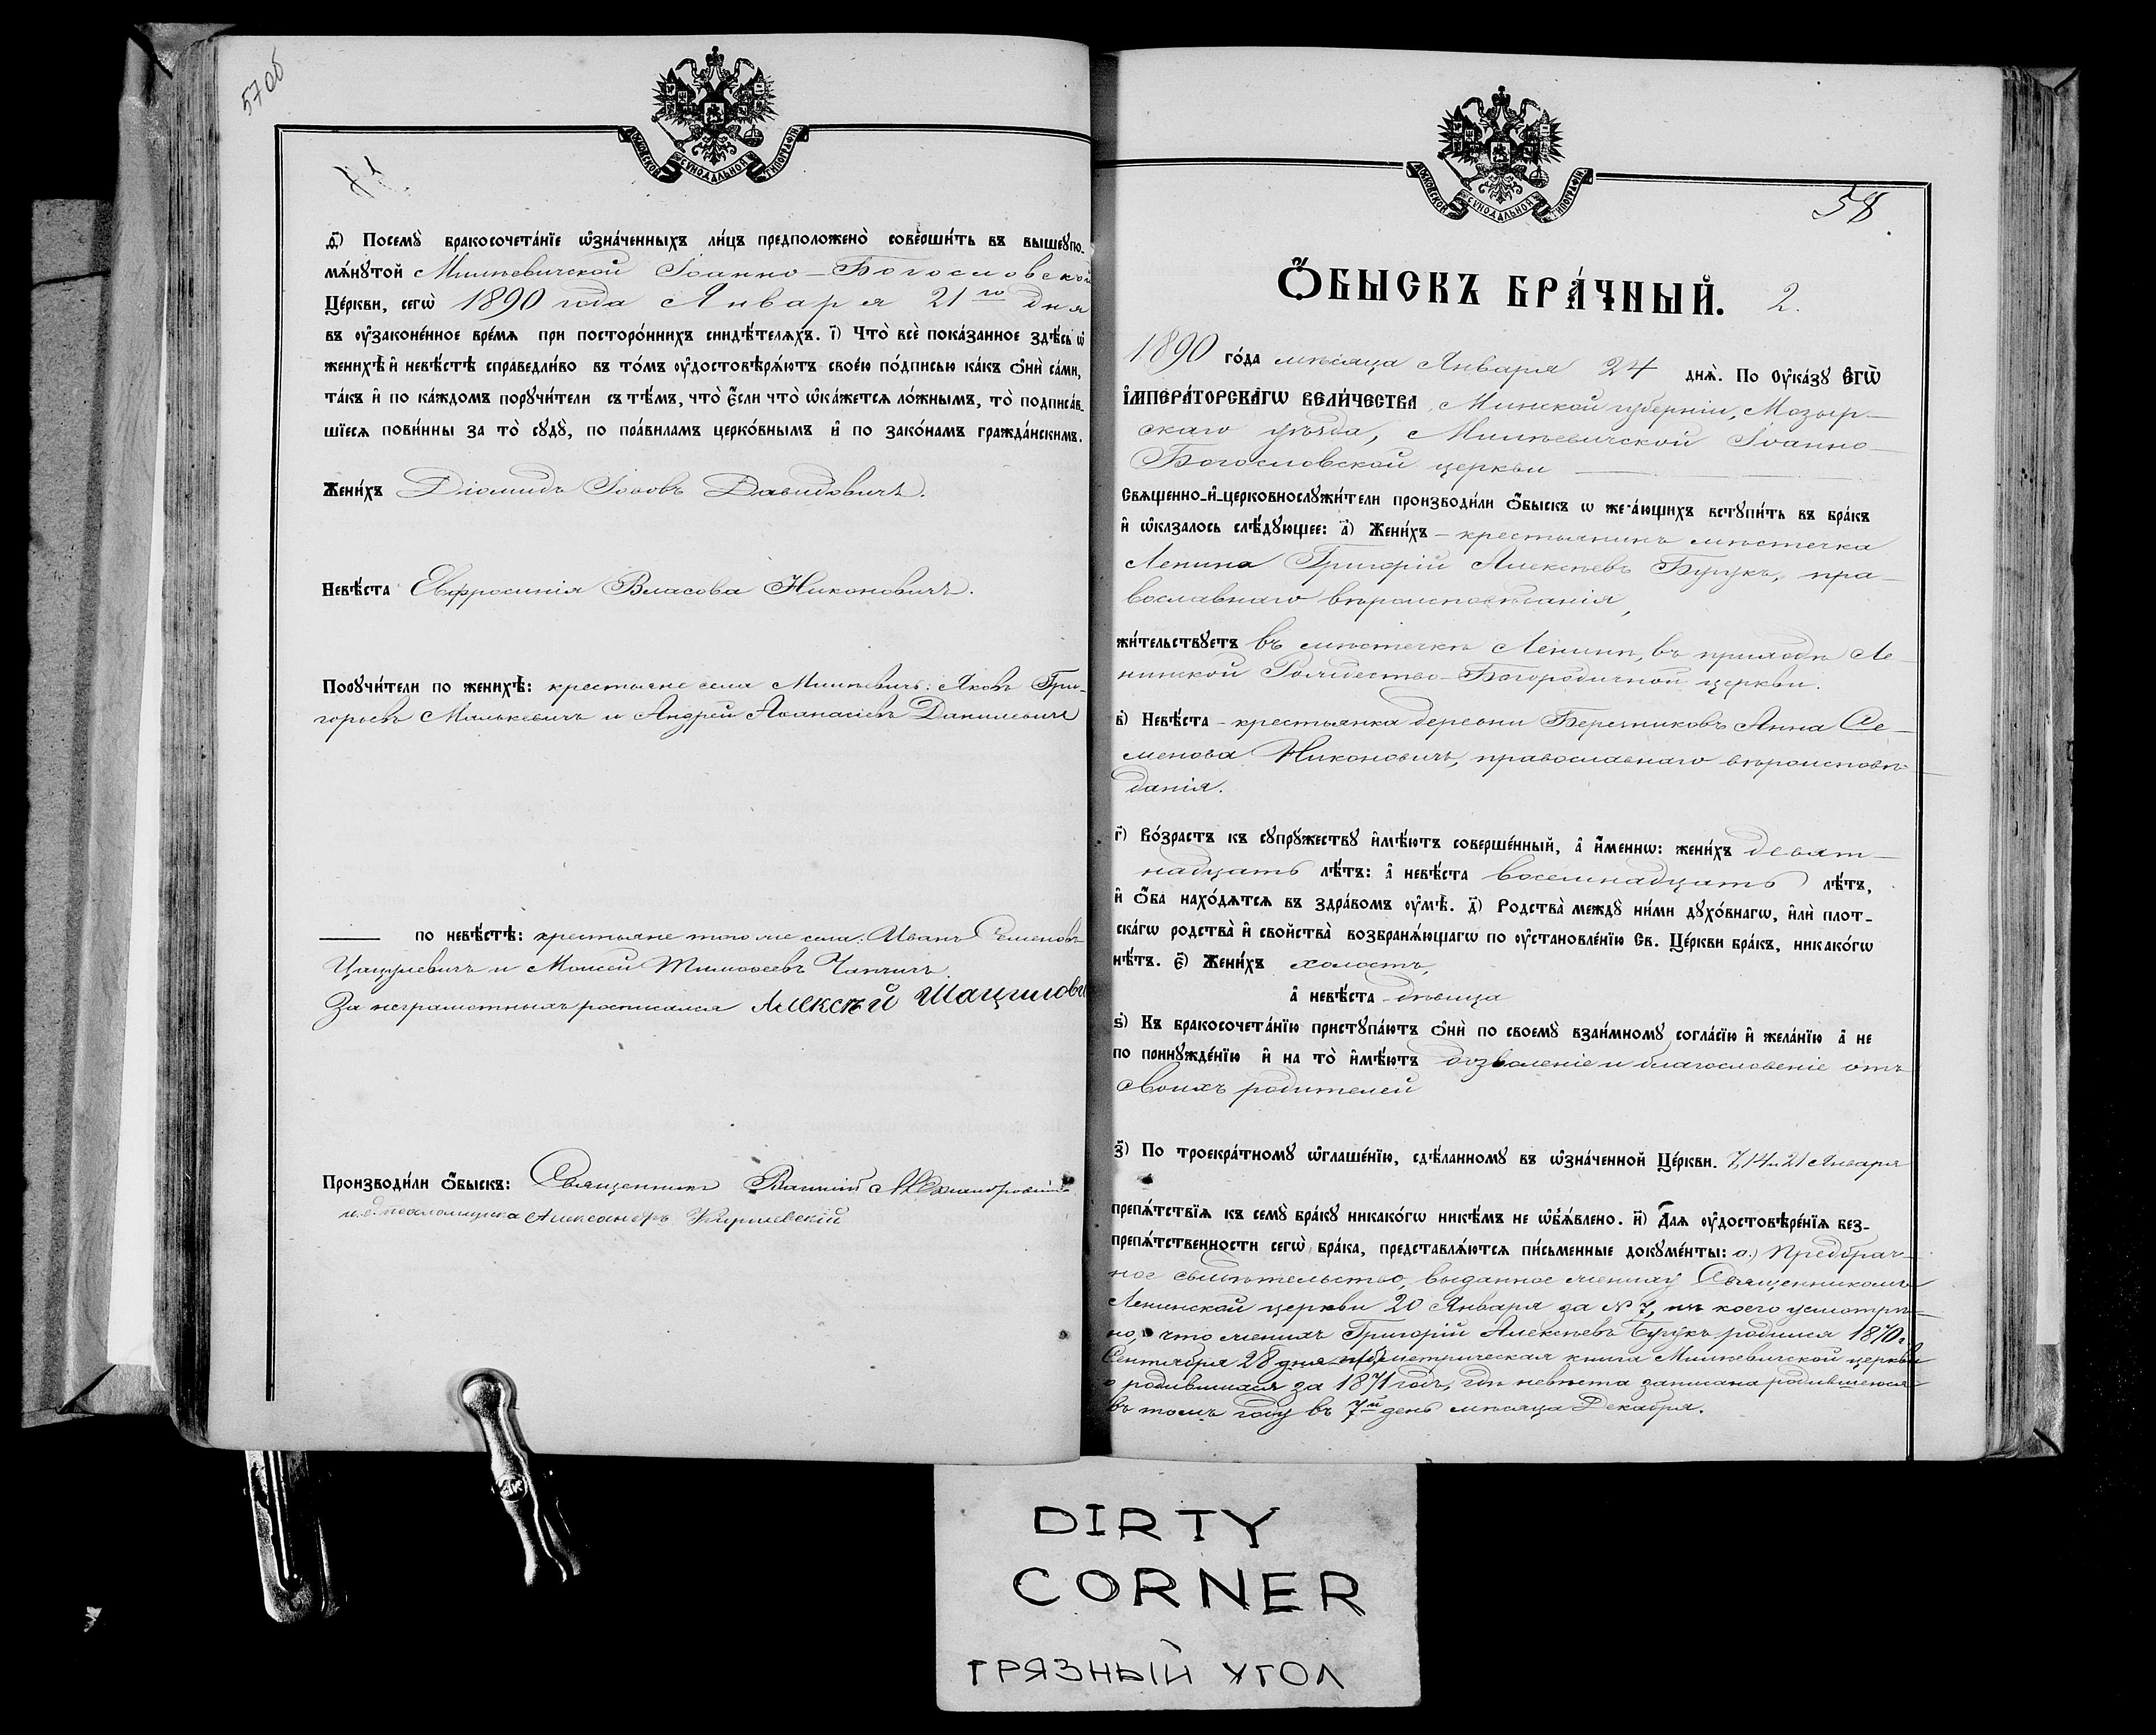 57 об
МОСКОВСКОЙ СѴНОДАЛЬНОЙ ТИПОГРАФІИ
ѳ҃) Посемꙋ̀ бракосочета́нїе ѡ҆зна́ченныхъ ли́цъ предположено̀ соверши́ть въ вышеꙋпо-
мѧ́нꙋтой Милевичской Іоанно-Богословской
Це́ркви, сегѡ̀ 1890 года Января 21го дня
въ ᲂу҆законе́нное вре́мѧ при посторо́ннихъ свидѣ́телѧхъ. і҃) Что̀ всѐ пока́занное здѣ́сь ѡ҆
женихѣ̀ и҆ невѣ́стѣ справедли́во въ то́мъ ᲂу҆достовѣрѧ́ютъ свое́ю по́дписью ка́къ ѻ҆нѝ са́ми,
та́къ и҆ по ка́ждомъ порꙋчи́тели съ тѣ́мъ, что̀ є҆́сли что̀ ѡ҆ка́жетсѧ ло́жнымъ, то̀ подписа́в-
шїесѧ пови́нны за то̀ сꙋдꙋ̀, по пра́виламъ церко́внымъ и҆ по зако́намъ гражда́нскимъ.
Жени́хъ Діомидъ Іововъ Давидовичъ.
Невѣ́ста Евфросинія Власова Никоновичъ.
Порꙋчи́тели по женихѣ̀: крестьяне села Милевичъ: Яковъ Гри-
горьевъ Малькевичъ и Андрей Аѳанасіевъ Данилевичъ
по невѣ́стѣ: крестьяне того же села: Иванъ Семеновъ
и Моисей Тимоѳеевъ
За неграмотныхъ росписался Алексѣй
Производи́ли ѻ҆́быскъ: Священникъ
и. д. псаломщика Александръ
58
МОСКОВСКОЙ СѴНОДАЛЬНОЙ ТИПОГРАФІИ
Ѻ҆́БЫСКЪ БРА́ЧНЫЙ. 2.
1890 го́да мѣсяца Января 24 днѧ̀. По ᲂу҆ка́зꙋ Є҆ГѠ̀
І҆МПЕРА́ТОРСКАГѠ ВЕЛИ́ЧЕСТВА, Минской губерніи, Мозыр-
скаго уѣзда, Милевичской Іоанно-
Богословской церкви
Свѧщенно-и҆-церковнослꙋжи́тели производи́ли ѻ҆́быскъ ѡ҆ жела́ющихъ встꙋпи́ть въ бра́къ
и҆ ѡ҆казалось слѣ́дꙋющее: а҃) Жени́хъ - крестьянинъ мѣстечка
Ленина Григорій Алексѣевъ Бурукъ, пра-
вославнаго вѣроисповѣданія,
жи́тельствꙋетъ въ мѣстечкѣ Ленинѣ, въ приходѣ Ле-
нинской Рождество-Богородичной церкви.
в҃) Невѣ́ста - крестьянка деревни Березниковъ Анна Се-
менова Никоновичъ, православнаго вѣроисповѣ-
данія.
г҃) Во́зрастъ къ сꙋпрꙋ́жествꙋ и҆мѣ́ютъ соверше́нный, а҆ и҆́меннѡ: жени́хъ девят-
надцать лѣ́тъ: а҆ невѣ́ста восемнадцать лѣ́тъ,
и҆ ѻ҆́ба нахо́дѧтсѧ въ здра́вомъ ᲂу҆мѣ̀. д҃) Родства̀ междꙋ̀ ни́ми дꙋхо́внагѡ, и҆лѝ плот-
ска́гѡ родства̀ и҆ свойства̀ возбранѧ́ющагѡ по ᲂу҆становле́нїю Св. Це́ркви бра́къ, никако́гѡ
нѣ́тъ. є҃) Жени́хъ холостъ,
а҆ невѣ́ста - дѣвица
ѕ҃) Къ бракосочета́нїю пристꙋпа́ютъ ѻ҆нѝ по своемꙋ̀ взаи́мномꙋ согла́сїю и҆ жела́нїю а҆ не
по принꙋжде́нїю и҆ на то̀ и҆мѣ́ютъ дозволеніе и благословеніе отъ
своихъ родителей
з҃) По троекра́тномꙋ ѡ҆глаше́нїю, сдѣ́ланномꙋ въ ѡ҆зна́ченной Це́ркви. 7, 14 и 21 Января
препѧ́тствїѧ къ семꙋ̀ бра́кꙋ никако́гѡ никѣ́мъ не ѡ҆б̾ѧ́влено. и҃) Длѧ ᲂу҆достовѣре́нїѧ без-
препѧ́тственности сегѡ̀ бра́ка, представлѧ́ютсѧ пи́сьменные докꙋме́нты: а.) Предбрач-
ное свидѣтельство, выданное жениху Священникомъ
Ленинской церкви 20 Января за № 7, изъ коего усмотрѣ-
но, что женихъ Григорій Алексѣевъ Бурукъ родился 1870 г.
Сентября 28 дня метрическая книга Милевичской церкви
о родившихся за 1871 годъ, гдѣ невѣста записана родившеюся
въ томъ году въ 7й день мѣсяца Декабря.
DIRTY
CORNER
ГРЯЗНЫЙ УГОЛ